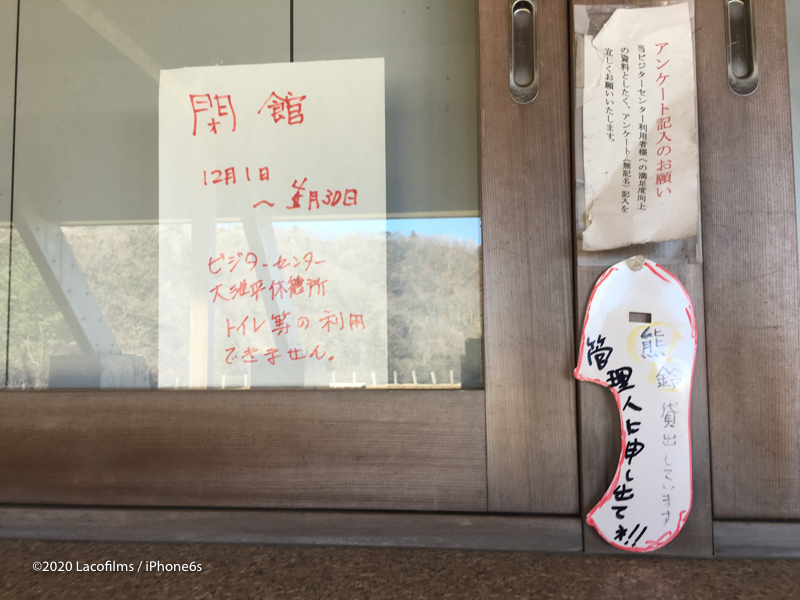 閉館
12月1日
～4月30日
ビジターセンター
大池平休憩所
トイレ等の利用
できません。
アンケート記入のお願い
当ビジターセンター利用者様への満足度向上
の資料としたく、アンケート（無記名）記入を
宜しくお願いいたします。
熊鈴貸出しています
管理人に申し出て!!
©2020 Lacofilms / iPhone6s